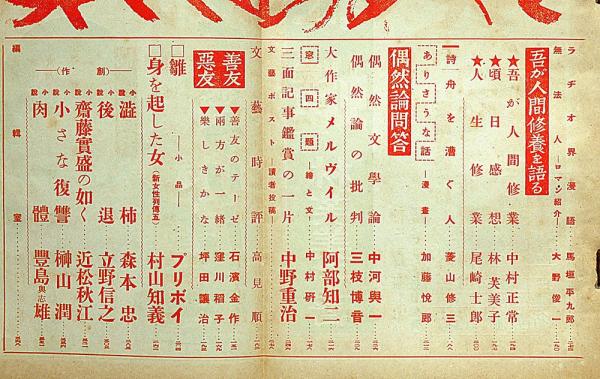 ラヂオ界漫語 馬垣平九郎
無法人 ―ロマン紹介― 大野俊一
吾が人間修養を語る
★吾が人間修業 中村正常
★頃日感想 林芙美子
★人生修業 尾崎士郎
詩舟を漕ぐ人 菱山修三
ありさうな話 ―漫畫― 加藤悦郎
偶然論問答
偶然文學論 中河與一
偶然論の批判 三枝博音
大作家メルヴイル 阿部知二
窓四題 ―繪と文― 中村研一
三面記事鑑賞の一片 中野重治
文藝ポスト ―讀者投稿―
文藝時評 高見順
善友 惡友
▼善友のテーゼ 石濱金作
▼兩方が一緒 窪川稻子
▼樂しきかな 坪田讓治
□雛 ―小品― プリボイ
□身を起した女 (新女性列傳五) 村山知義
―(創作)―
小説 澁柿 森本忠
小説 後退 立野信之
齋藤實盛の如く 近松秋江
小説 小さな復讐 榊山潤
小説 肉體 豐島與志雄
編輯室